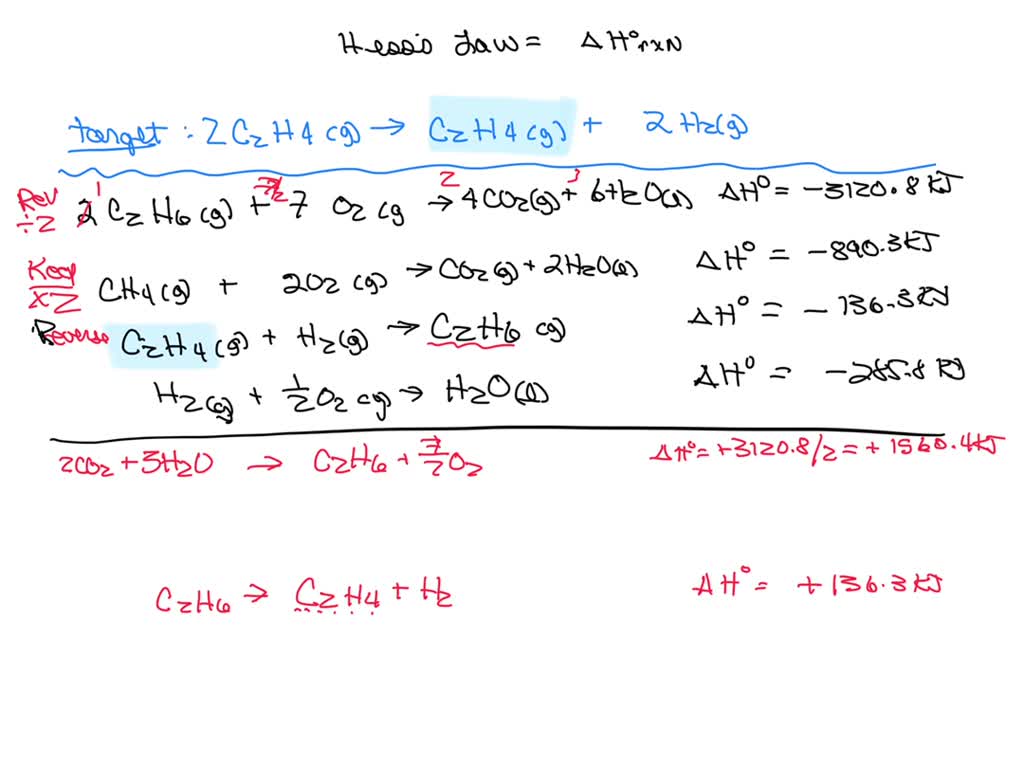 Hess's Law = ΔH°rxN
target : 2 C2H4 (g) → C2H4 (g) + 2 H2(g)
Rev ÷2 2 1 C2H6 (g) + 7/2 7 O2 (g → 2 4CO2(g) + 3 6H2O(l) ΔH° = -3120.8 kJ
Keep x2 CH4(g) + 2O2 (g) → CO2(g) + 2H2O(l) ΔH° = -890.3kJ
Reverse C2H4(g) + H2(g) → C2H6 (g) ΔH° = -136.3kJ
H2(g) + 1/2 O2 (g) → H2O(l) ΔH° = -285.8 kJ
2CO2 + 3H2O → C2H6 + 7/2 O2 ΔH° = +3120.8/2 = +1560.4kJ
C2H6 → C2H4 + H2 ΔH° = +136.3kJ